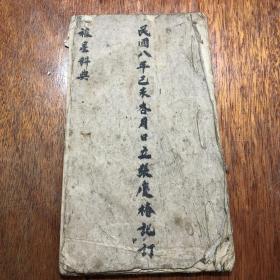 民國八年己未春月日立張慶椿記訂
禳星科典